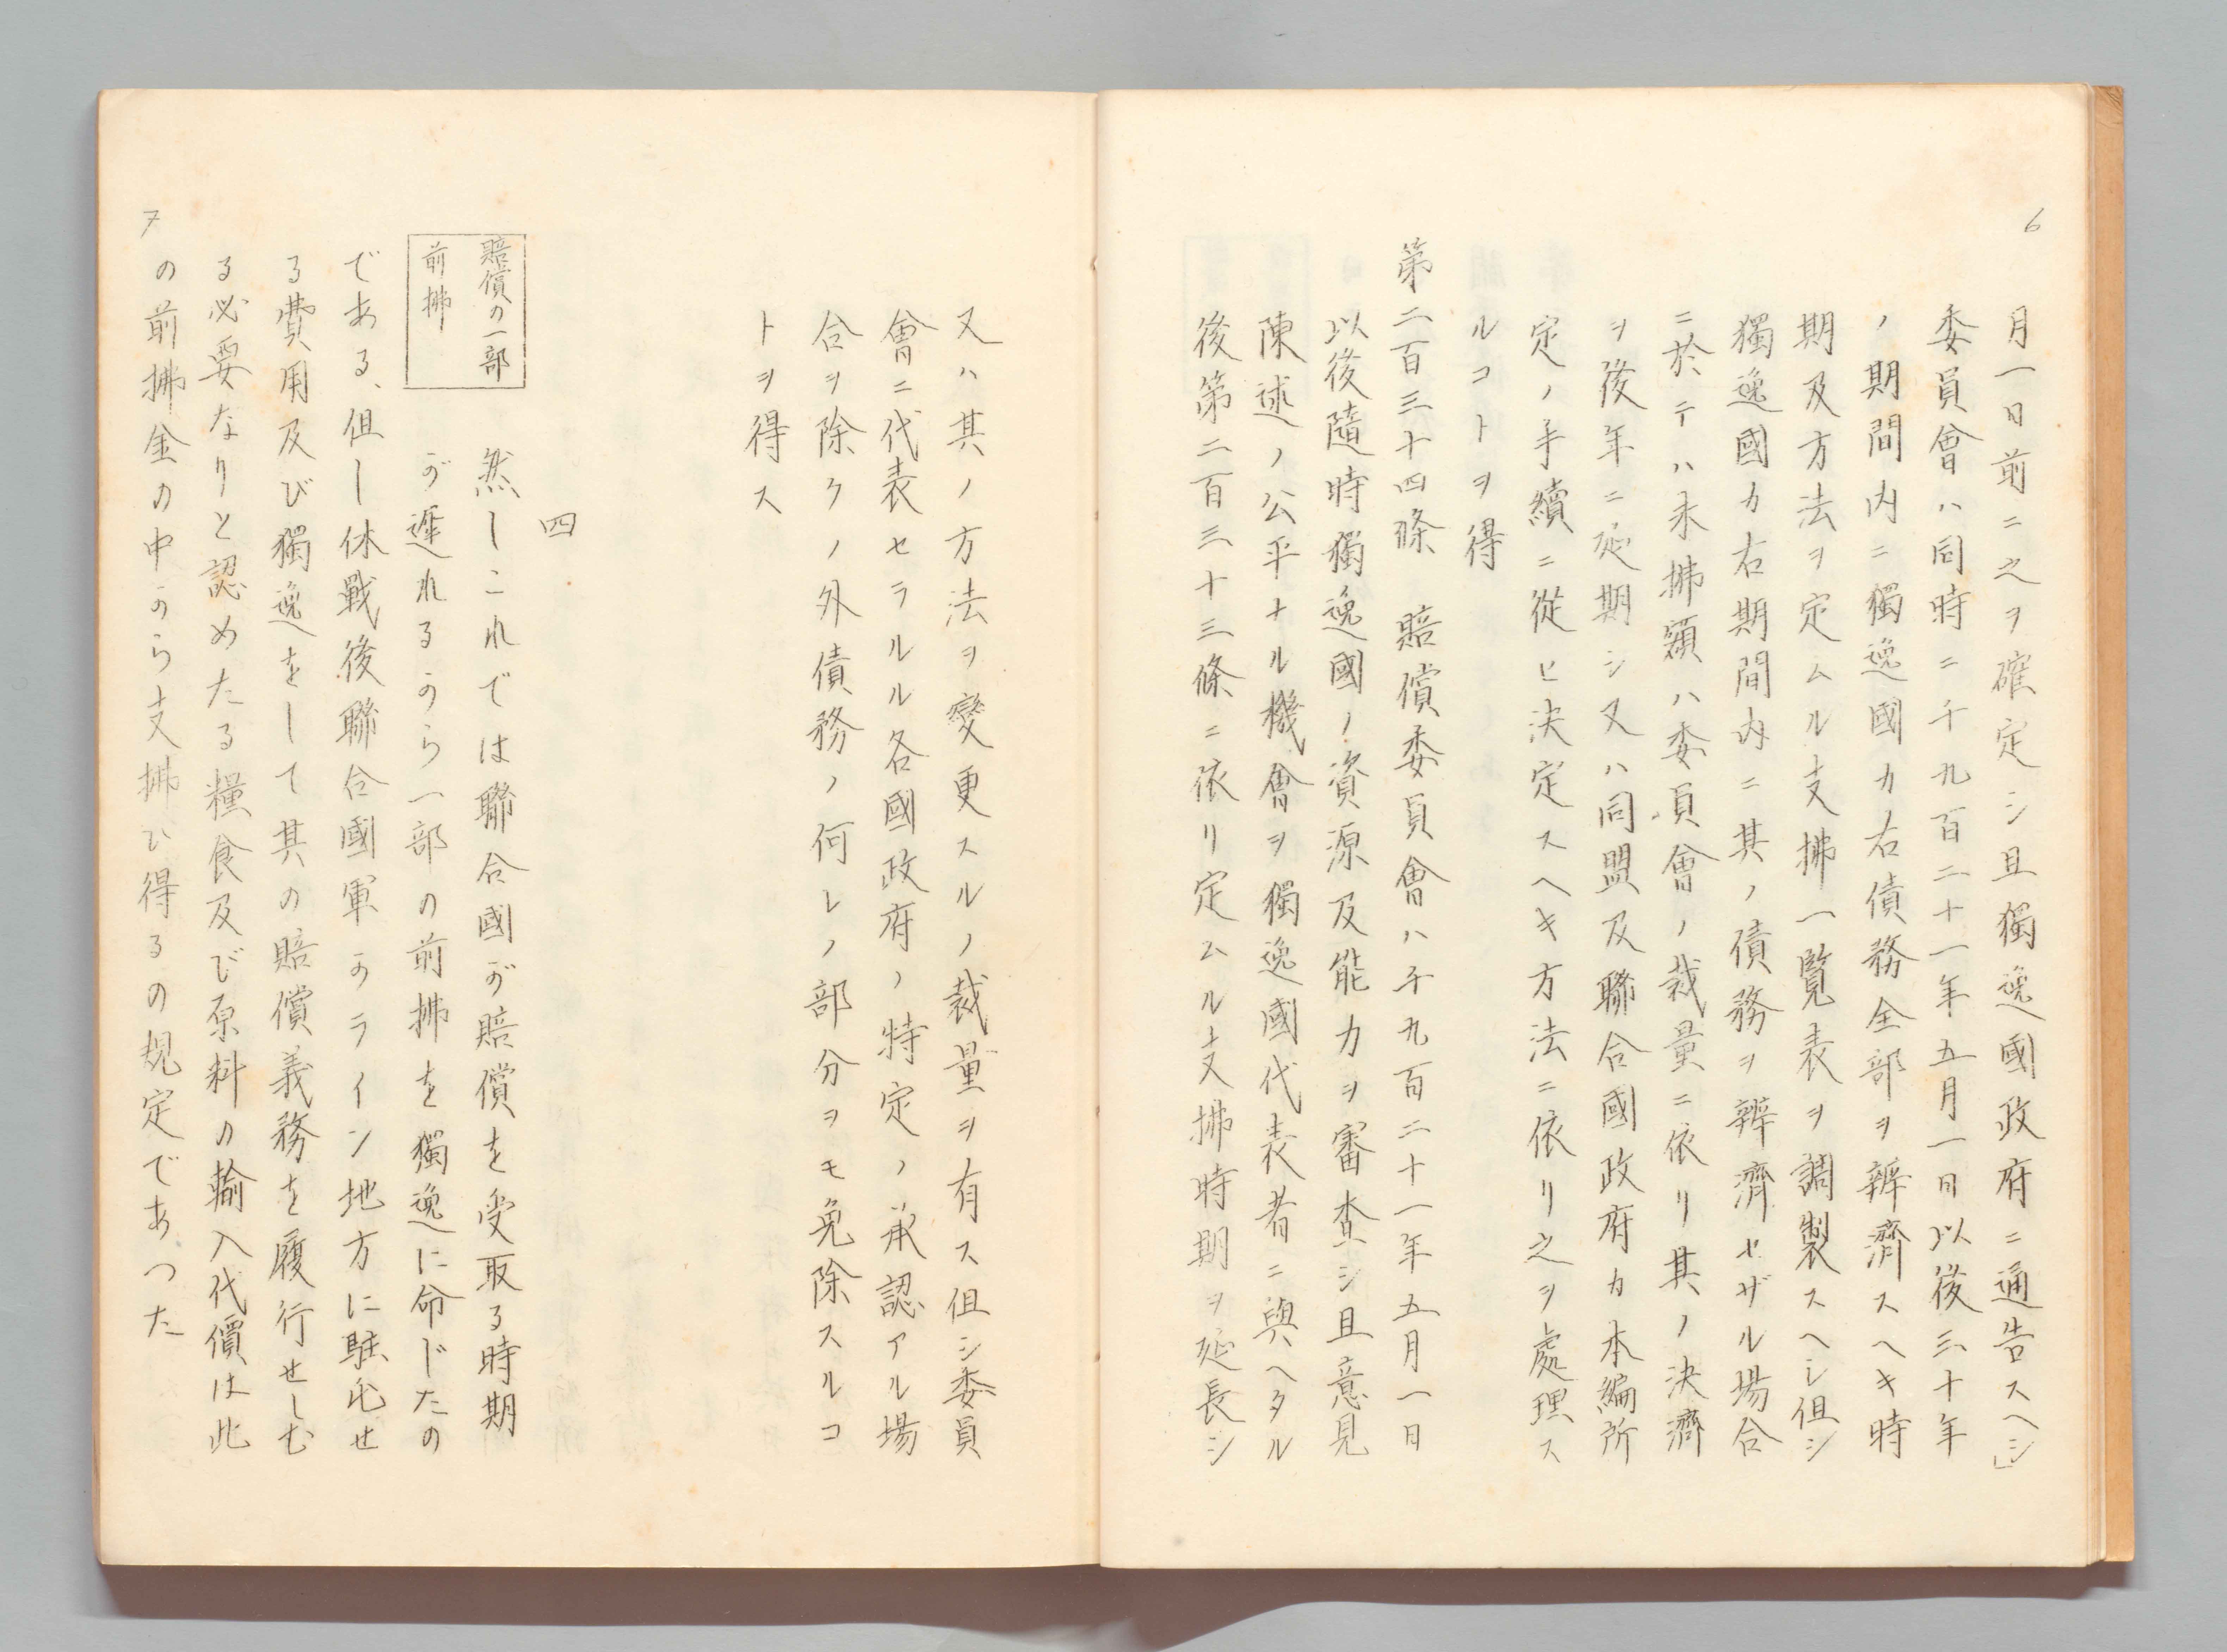 6
月一日前ニ之ヲ確定シ且獨逸國政府ニ通告スヘシ」
委員會ハ同時ニ千九百二十一年五月一日以後三十年
ノ期間内ニ獨逸國カ右債務全部ヲ辨濟スヘキ時
期及方法ヲ定ムル支拂一覧表ヲ調製スヘシ但シ
獨逸國カ右期間内ニ其ノ債務ヲ辨濟セザル場合
ニ於テハ未拂額ハ委員會ノ裁量ニ依リ其ノ決濟
ヲ後年ニ延期シ又ハ同盟及聯合國政府カ本編所
定ノ手續ニ從ヒ決定スヘキ方法ニ依リ之ヲ處理ス
ルコトヲ得
第二百三十四條 賠償委員會ハ千九百二十一年五月一日
以後隨時獨逸國ノ資源及能力ヲ審査シ且意見
陳述ノ公平ナル機會ヲ獨逸國代表者ニ與ヘタル
後第二百三十三條ニ依リ定ムル支拂時期ヲ延長シ
又ハ其ノ方法ヲ變更スルノ裁量ヲ有ス但シ委員
會ニ代表セラルル各國政府ノ特定ノ承認アル場
合ヲ除クノ外債務ノ何レノ部分ヲモ免除スルコ
トヲ得ス
四
賠償の一部
前拂
然しこれでは聯合國が賠償を受取る時期
が遲れるから一部の前拂を獨逸に命じたの
である、但し休戰後聯合國軍がライン地方に駐屯せ
る費用及び獨逸をして其の賠償義務を履行せしむ
る必要なりと認めたる糧食及び原料の輸入代價は此
の前拂金の中から支拂ひ得るの規定であつた
7